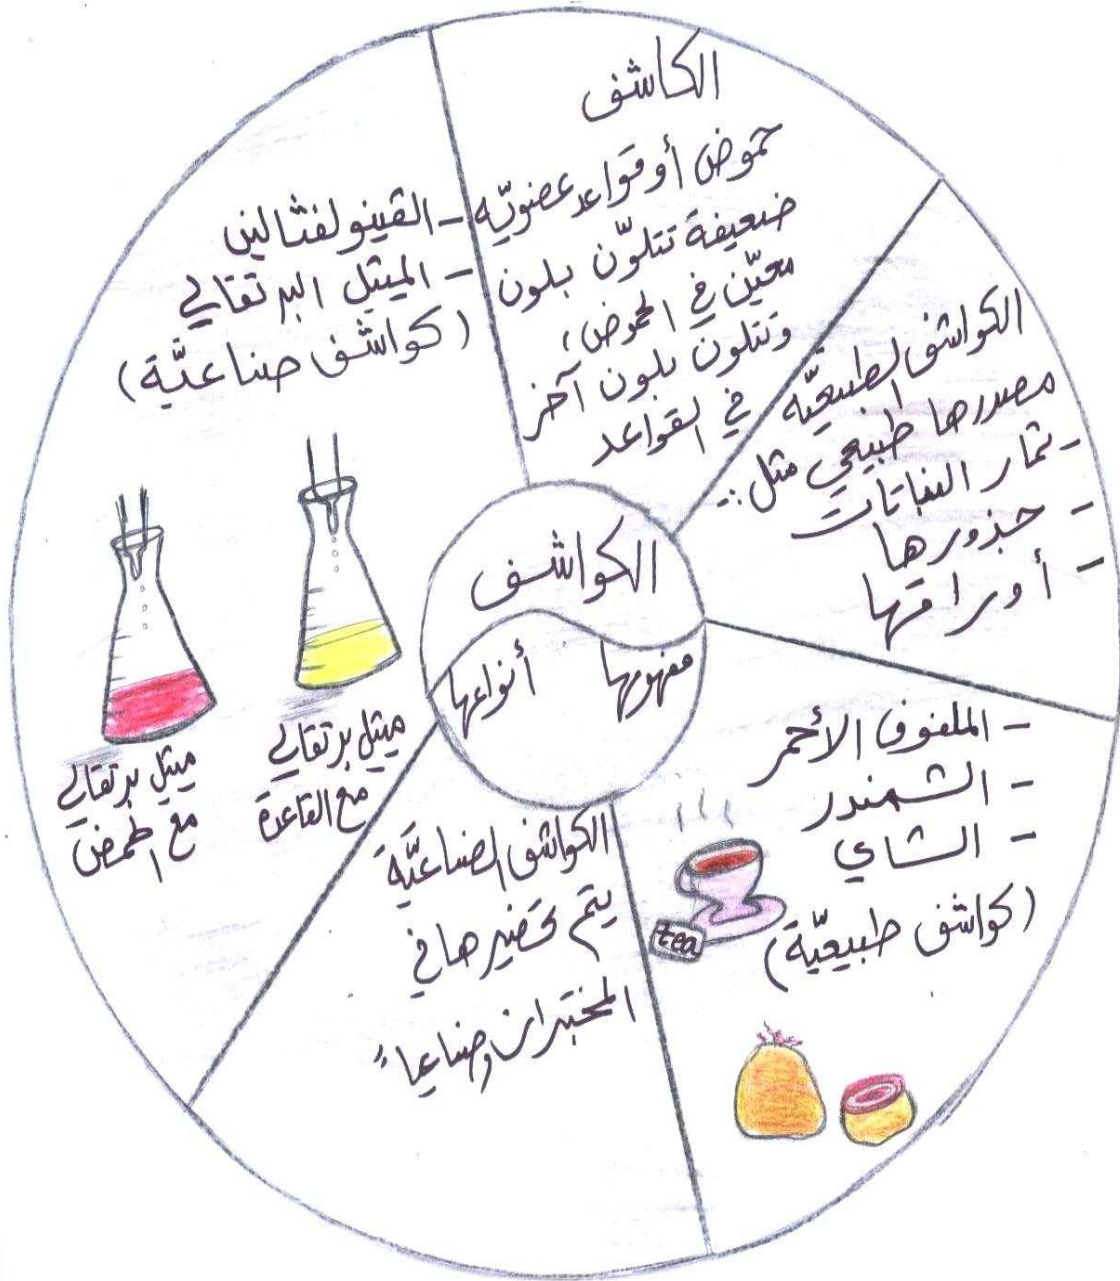 الكواشف
مفهومها
أنواعها
الكاشف
حموض أو قواعد عضويّة
ضعيفة تتلوّن بلون
معيّن في الحموض،
وتتلون بلون آخر
في القواعد
الكواشف الطبيعيّة
مصدرها طبيعي مثل:-
- ثمار النباتات
- جذورها
- أوراقها
- الملفوف الأحمر
- الشمندر
- الشاي
(كواشف طبيعيّة)
tea
الكواشف الصناعيّة
يتم تحضيرها في
المختبرات وصناعياً
- الفينولفثالين
- الميثل البرتقالي
(كواشف صناعيّة)
ميثل برتقالي
مع القاعدة
ميثل برتقالي
مع الحمض